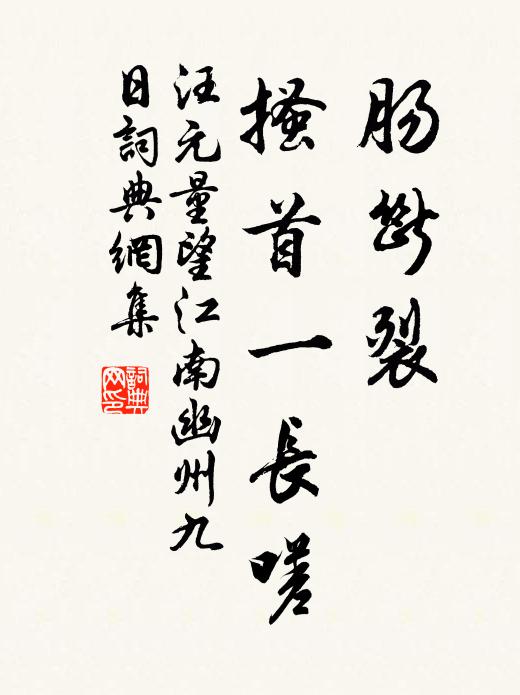 腸斷裂
搔首一長嗟
汪元量望江南幽州九
日詞典網集
詞典
网印